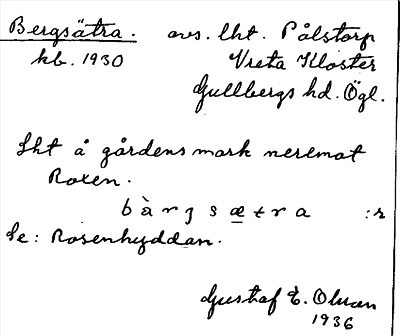 Bergsätra. avs. lht. Pålstorp
kb. 1930 Vreta Kloster
Gullbergs hd. Ögl.
Lht å gårdens mark neremot
Roxen.
bàrgsætra :r
Se: Rosenhyddan.
Gustaf E. Olsson
1936